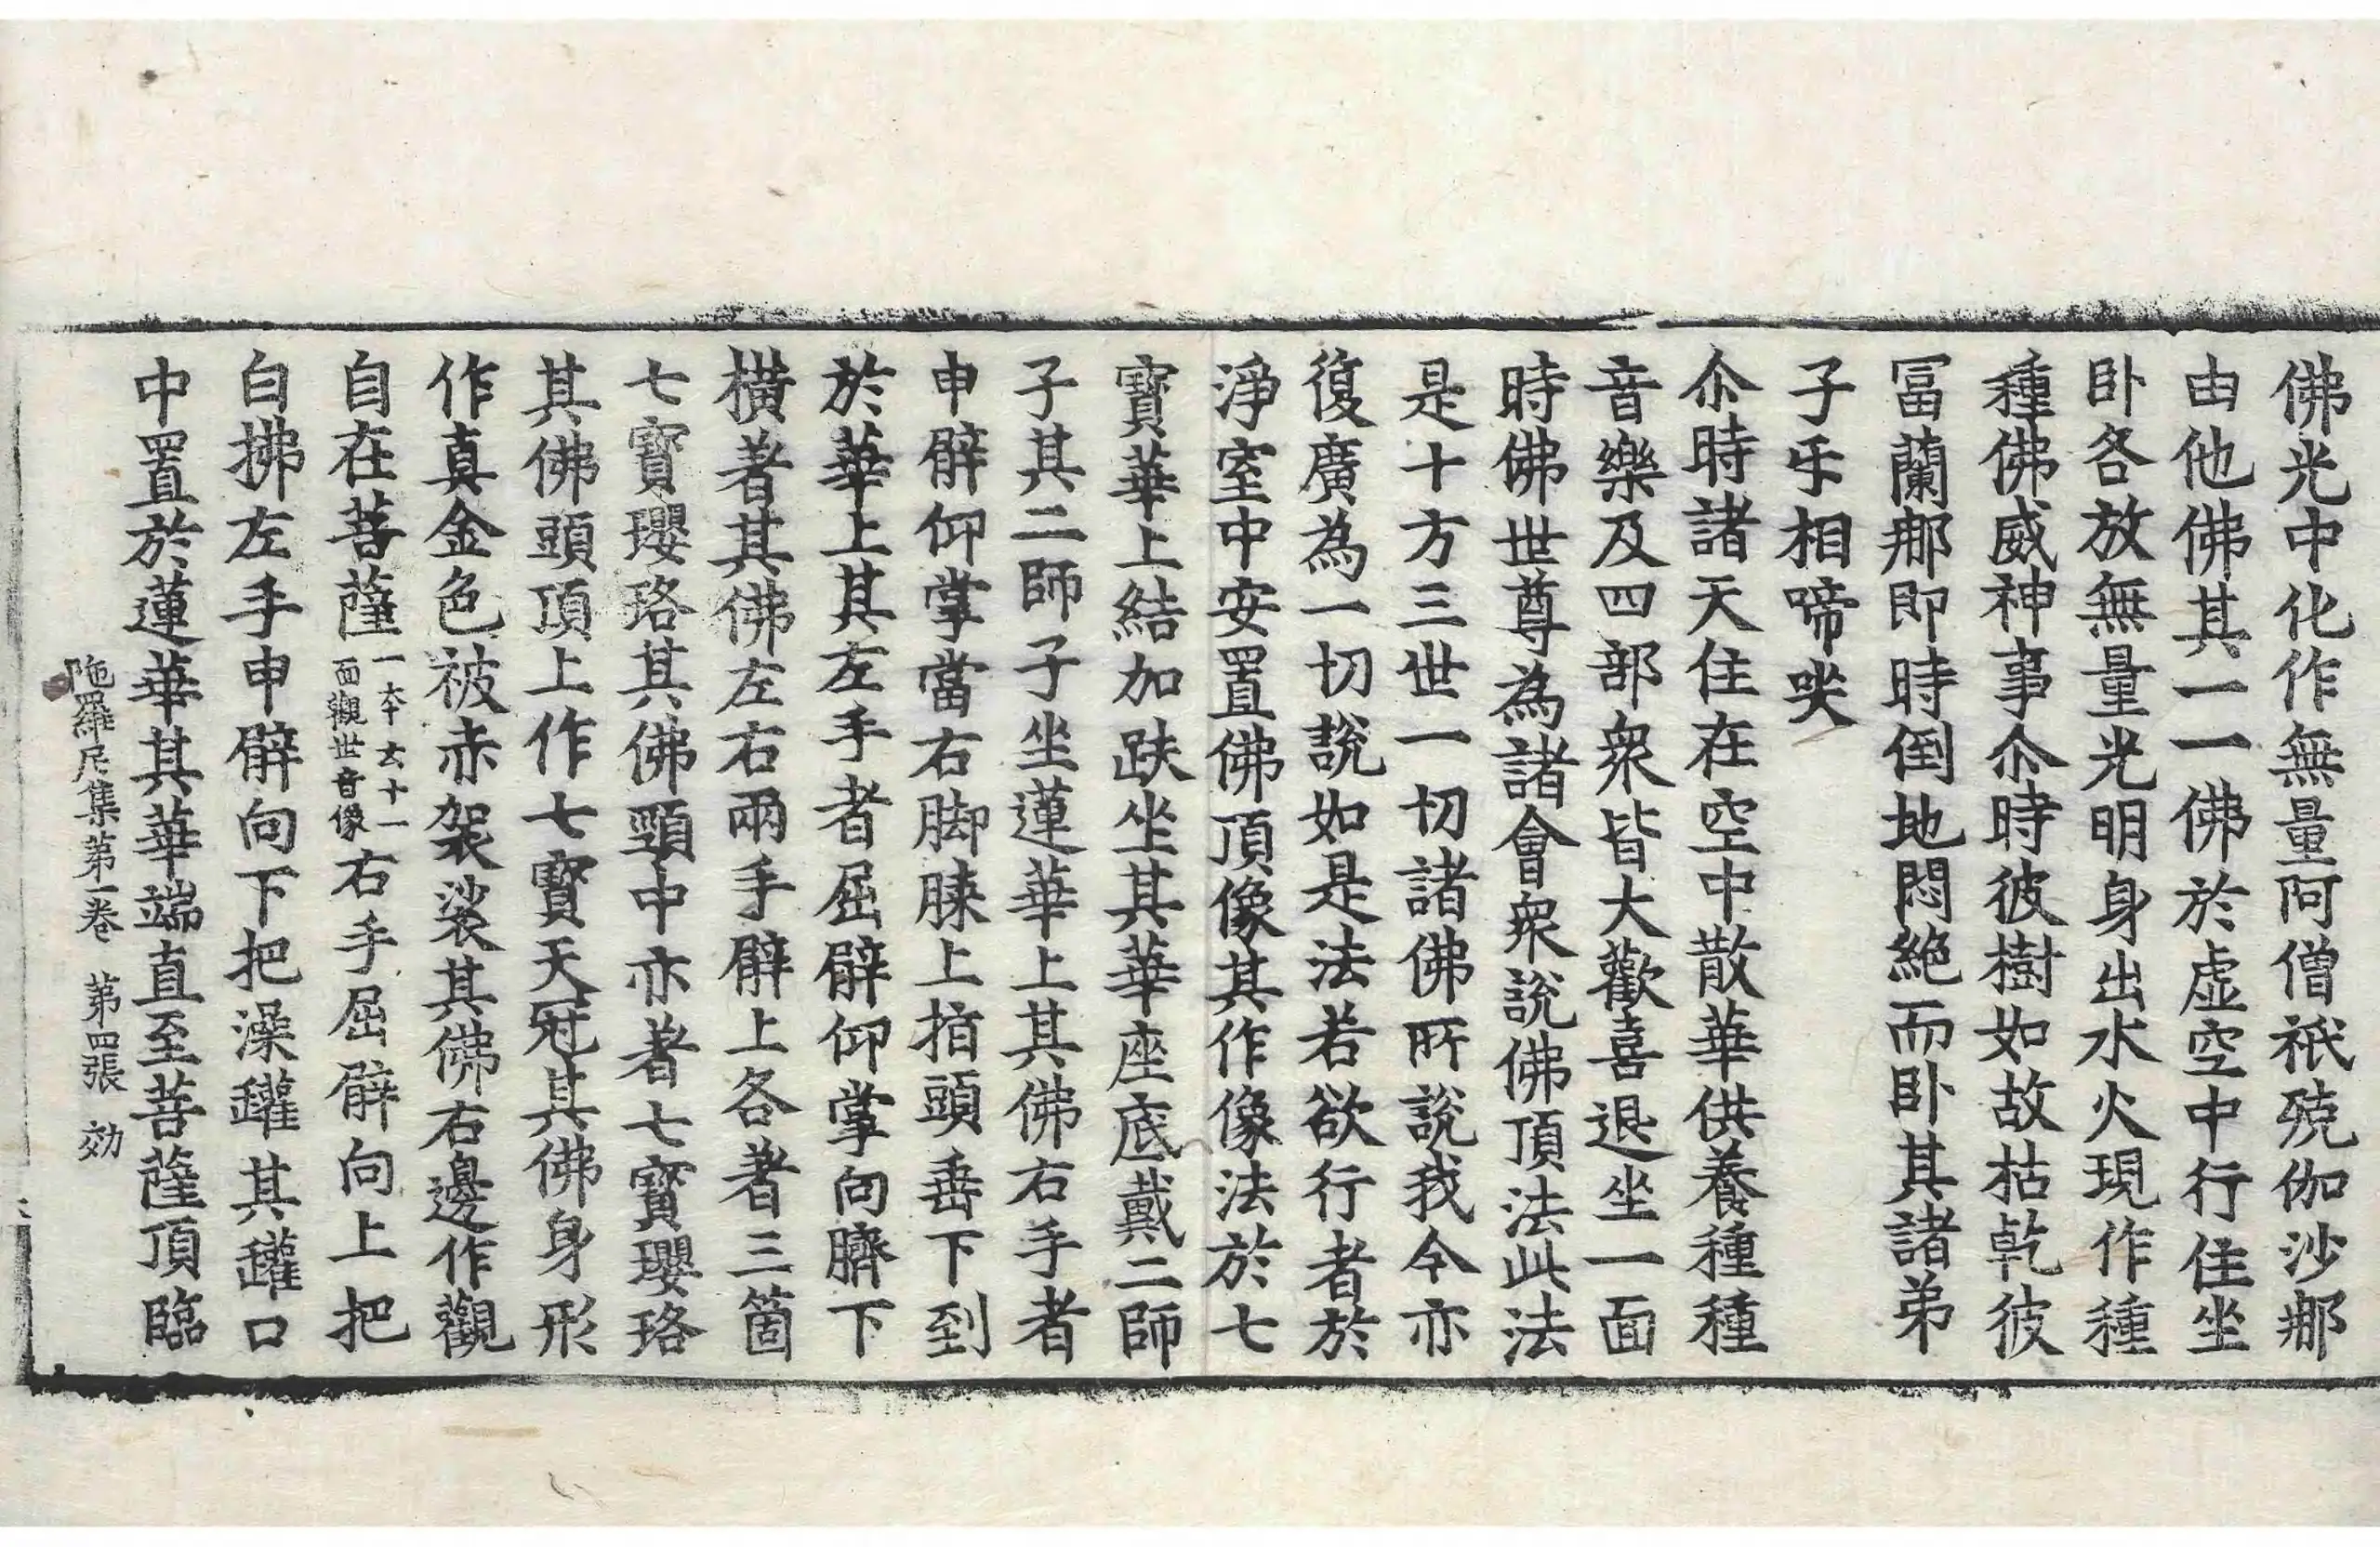 佛光中化作無量阿僧祇殑伽沙那
由他佛其一一佛於虛空中行住坐
卧各放無量光明身出水火現作種
種佛威神事尒時彼樹如故枯乾彼
冨蘭那即時倒地悶絶而卧其諸弟
子乎相啼㗛
尒時諸天住在空中散華供養種種
音樂及四部衆皆大歡喜退坐一面
時佛世尊為諸會衆說佛頂法此法
是十方三世一切諸佛所說我今亦
復廣為一切說如是法若欲行者於
淨室中安置佛頂像其作像法於七
寶華上結加趺坐其華座底戴二師
子其二師子坐蓮華上其佛右手者
申臂仰掌當右脚膝上指頭垂下到
於華上其左手者屈臂仰掌向臍下
橫著其佛左右兩手臂上各著三箇
七寶瓔珞其佛頸中亦著七寶瓔珞
其佛頭頂上作七寶天冠其佛身形
作真金色被赤袈裟其佛右邊作觀
自在菩薩一本云十一面觀世音像右手屈臂向上把
白拂左手申臂向下把澡罐其罐口
中置於蓮華其華端直至菩薩頂臨
陁羅尼集第一卷 第四張 効